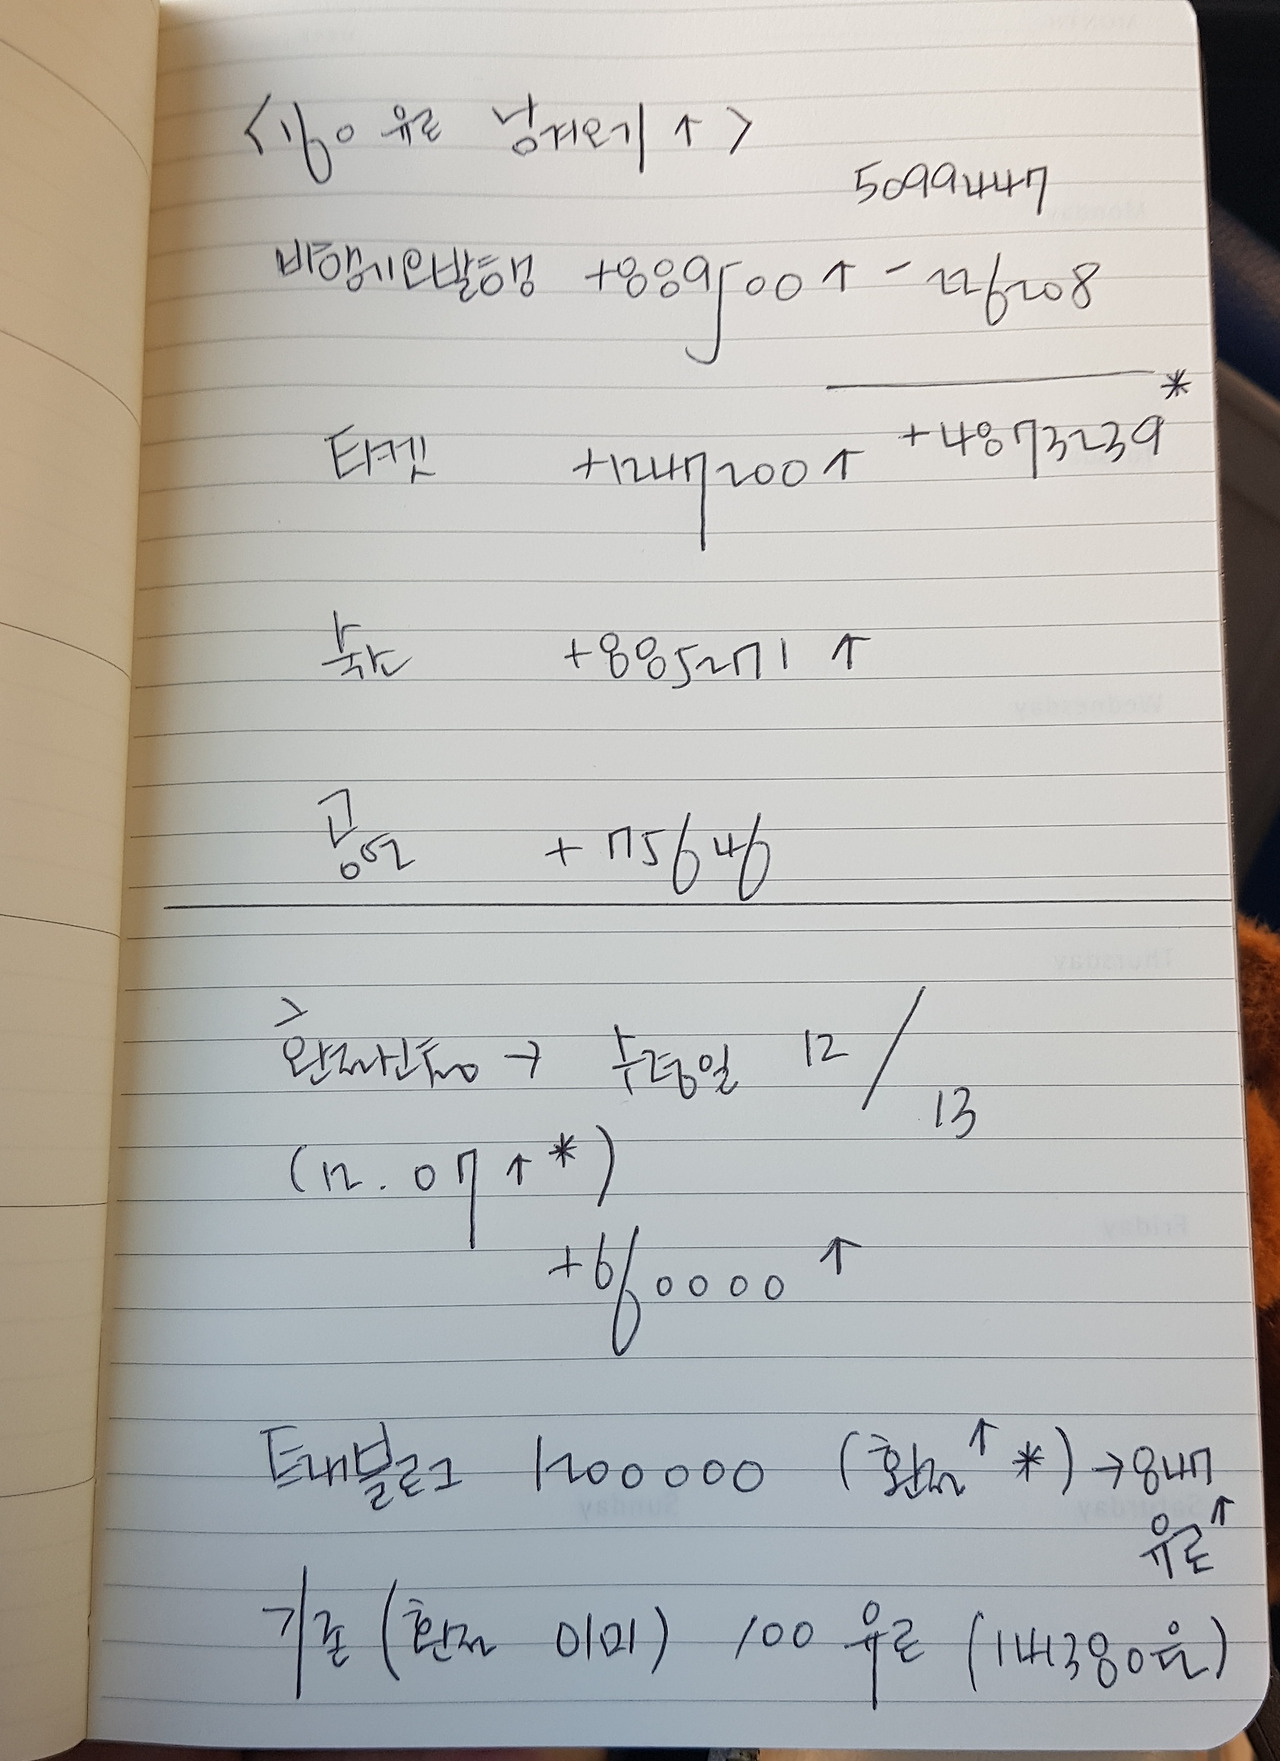 <160 유로 남겨오기 ↑>
5099447
비행기인발행 +889500 ↑ - 226208
타켓 +1247200 ↑ +4873239 *
숙소 +885271 ↑
공연 +75646
> 환전신청 → 수령일 12/13
(12.07 ↑ *)
+660000 ↑
트래블로그 1200000 (환전 ↑ *) → 847
유로 ↑
기존 (환전 이미) 100 유로 (141380원)